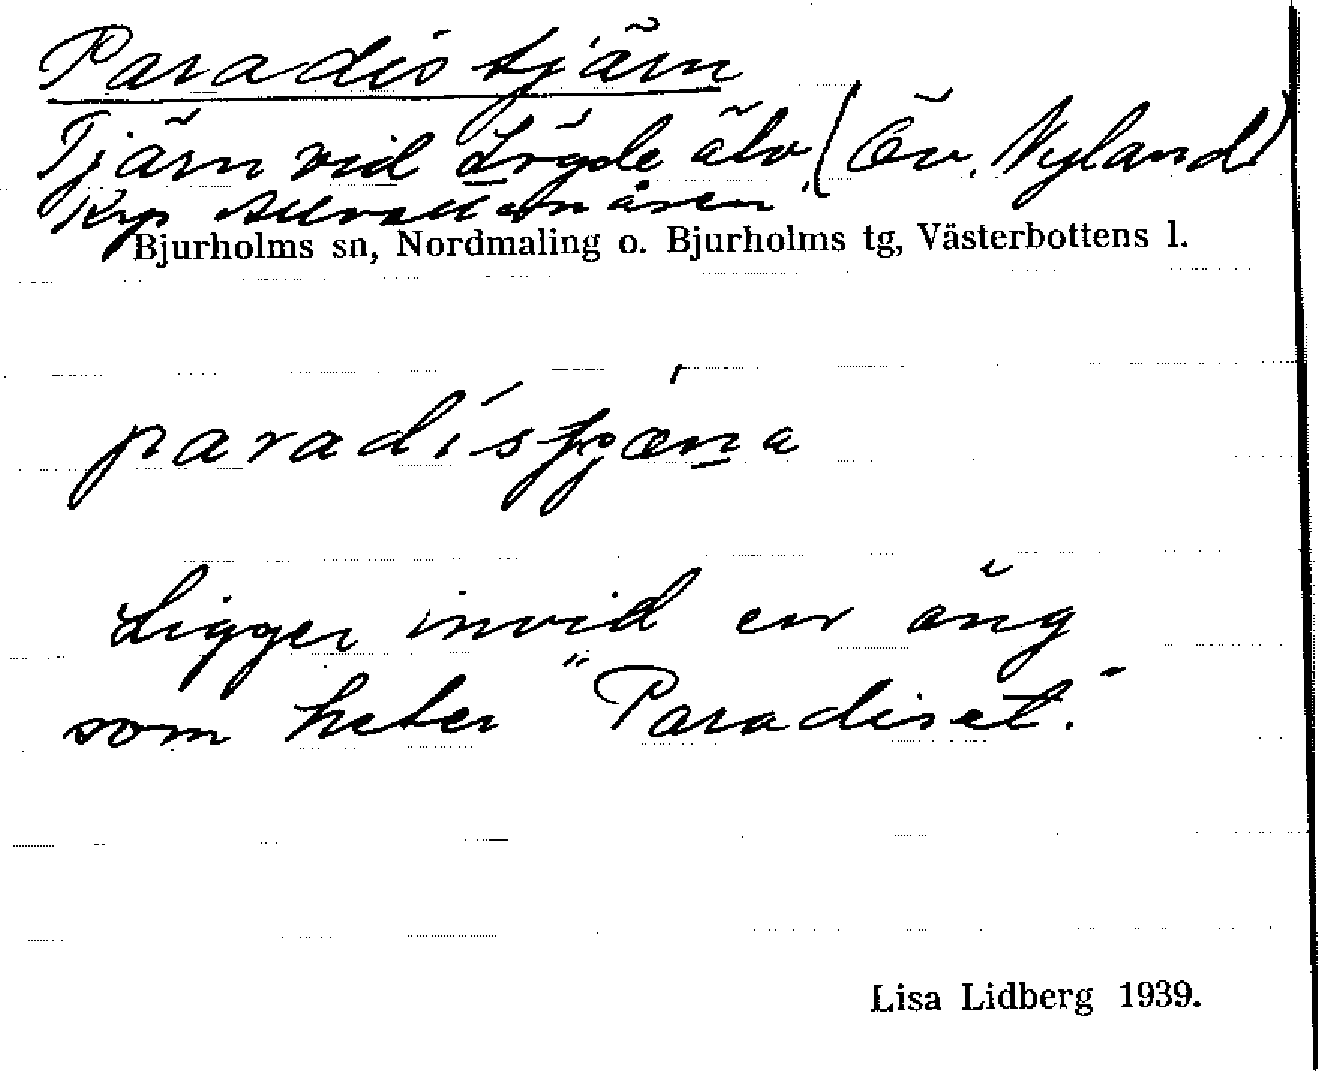 Paradistjärn
Tjärn vid Lögde älv (Öv. Nyland)
Krp
Bjurholms sn, Nordmaling o. Bjurholms tg, Västerbottens l.
Ligger invid en äng
som heter "Paradiset."
Lisa Lidberg 1939.